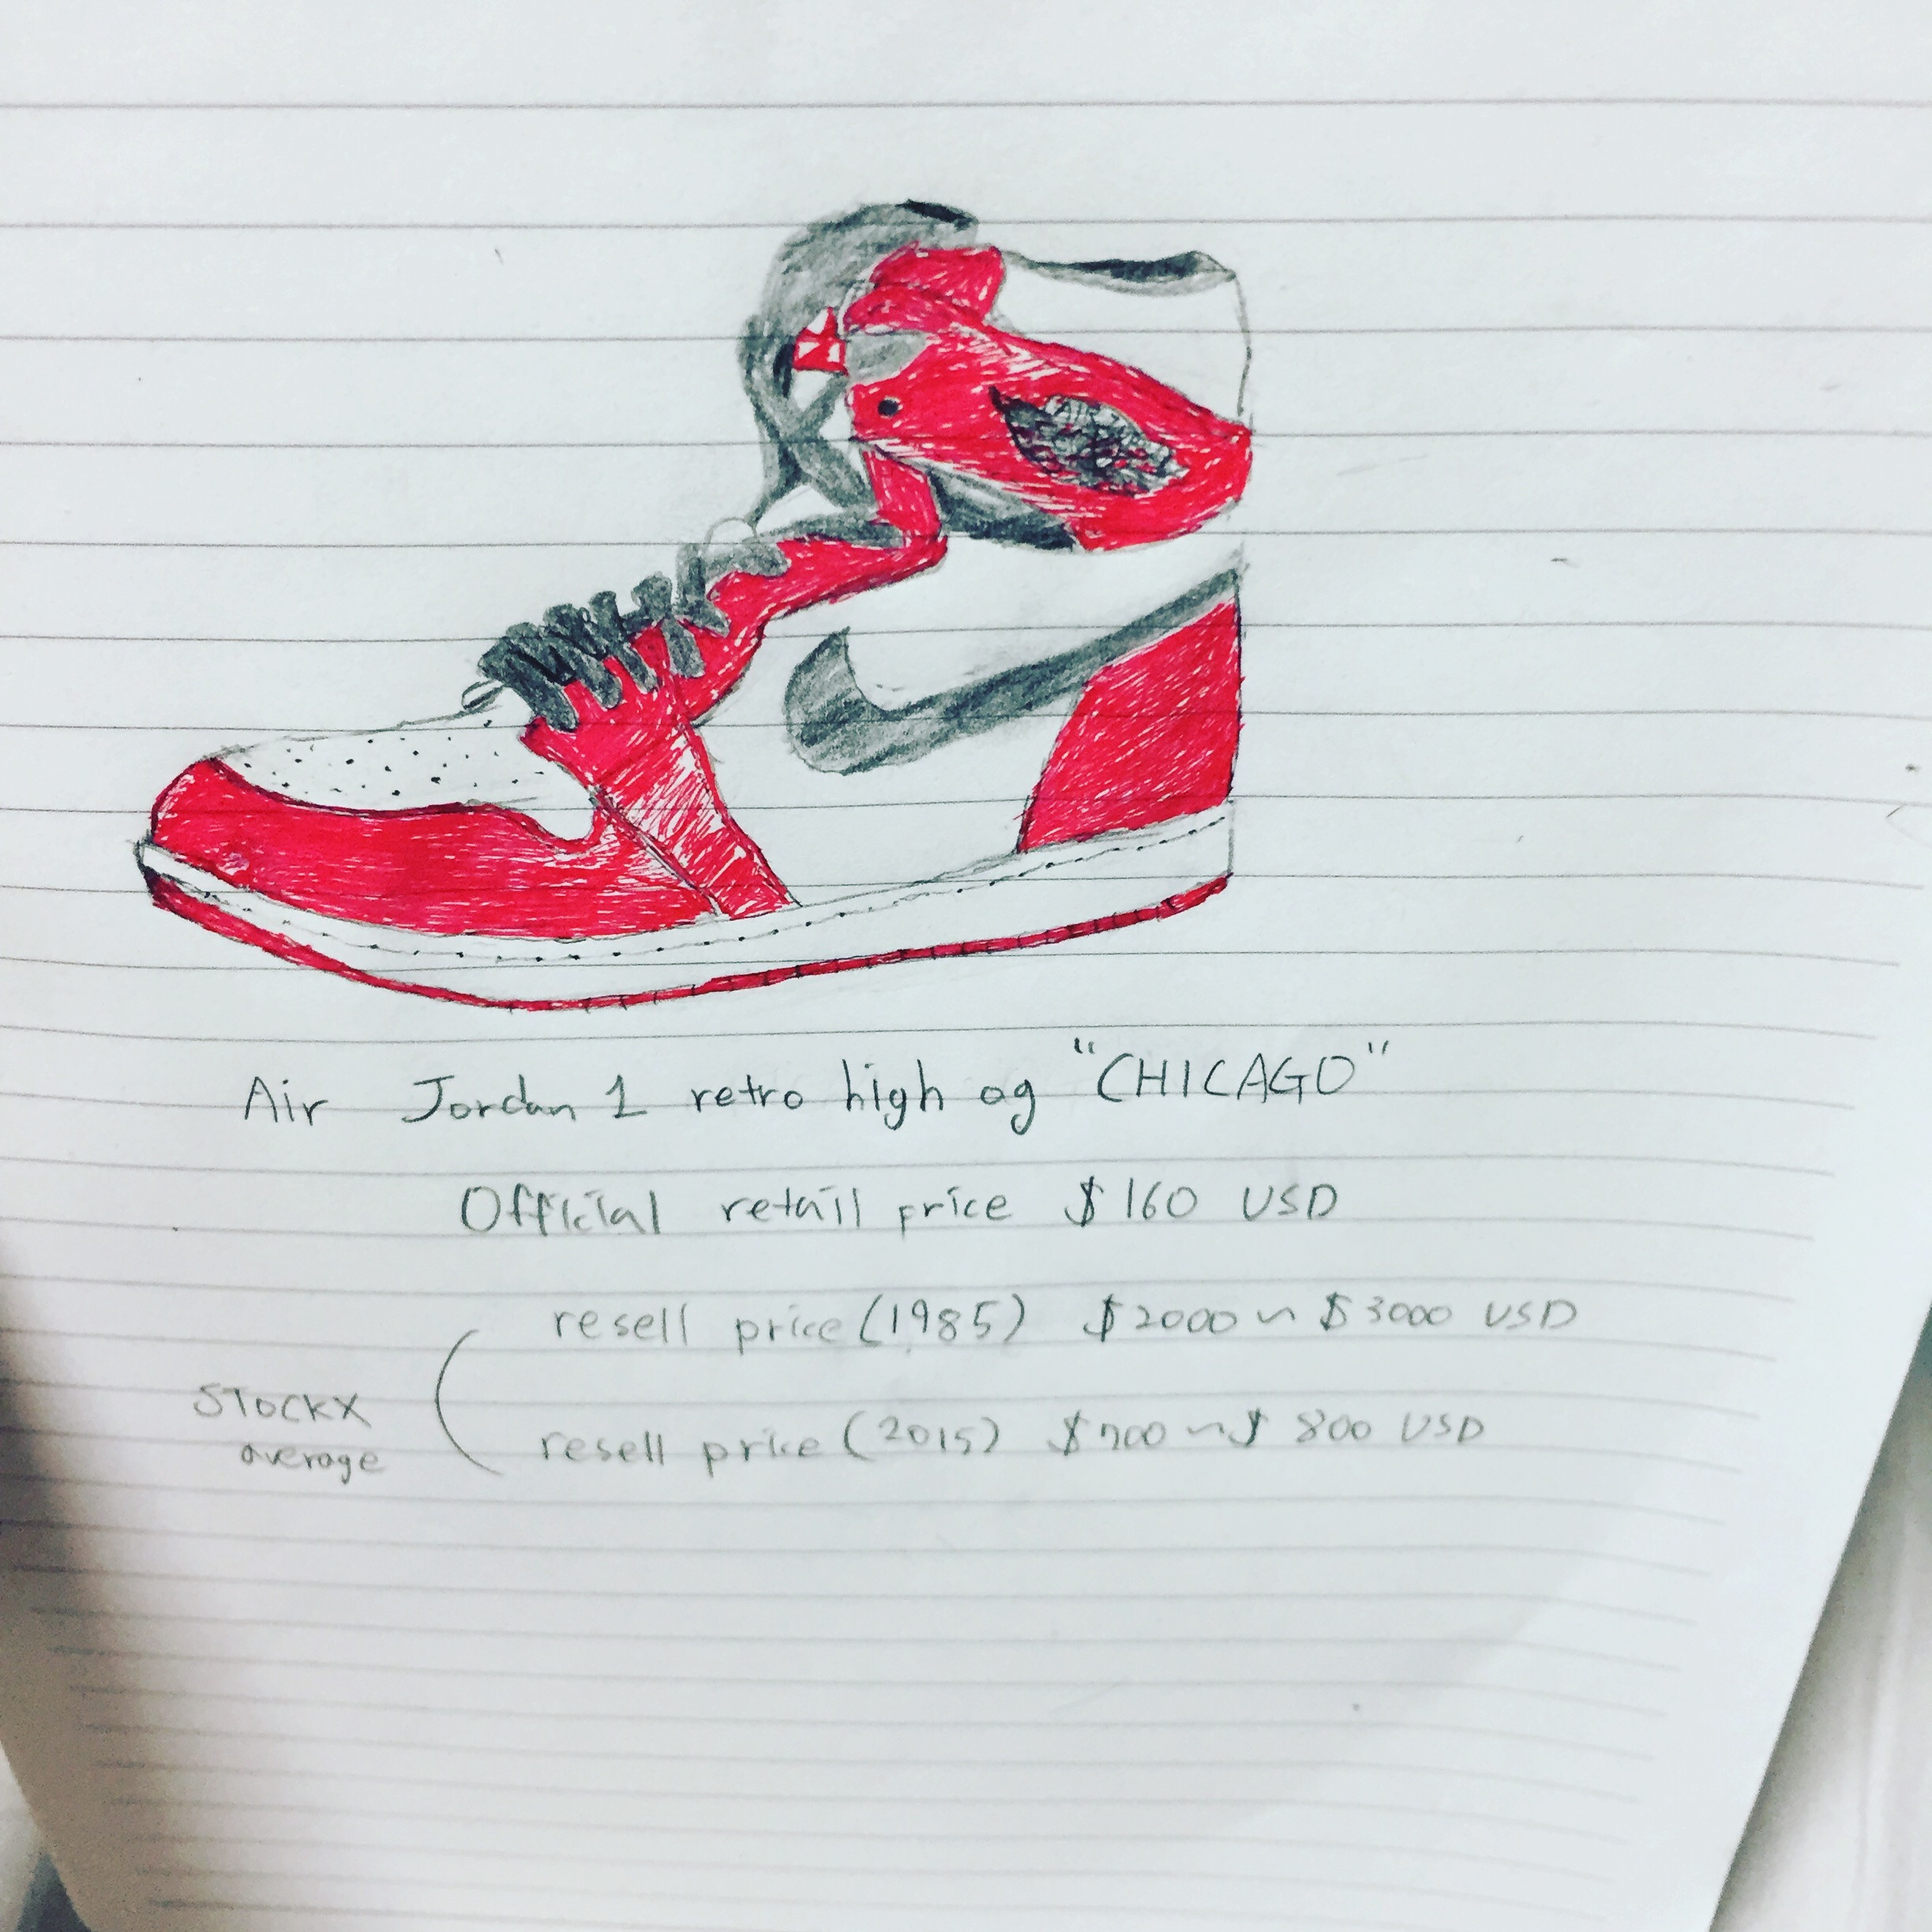 Air Jordan 1 retro high og "CHICAGO"
Official retail price $160 USD
resell price (1985) $2000 ~ $3000 USD
STOCKX
average
resell price (2015) $700 ~ $ 800 USD